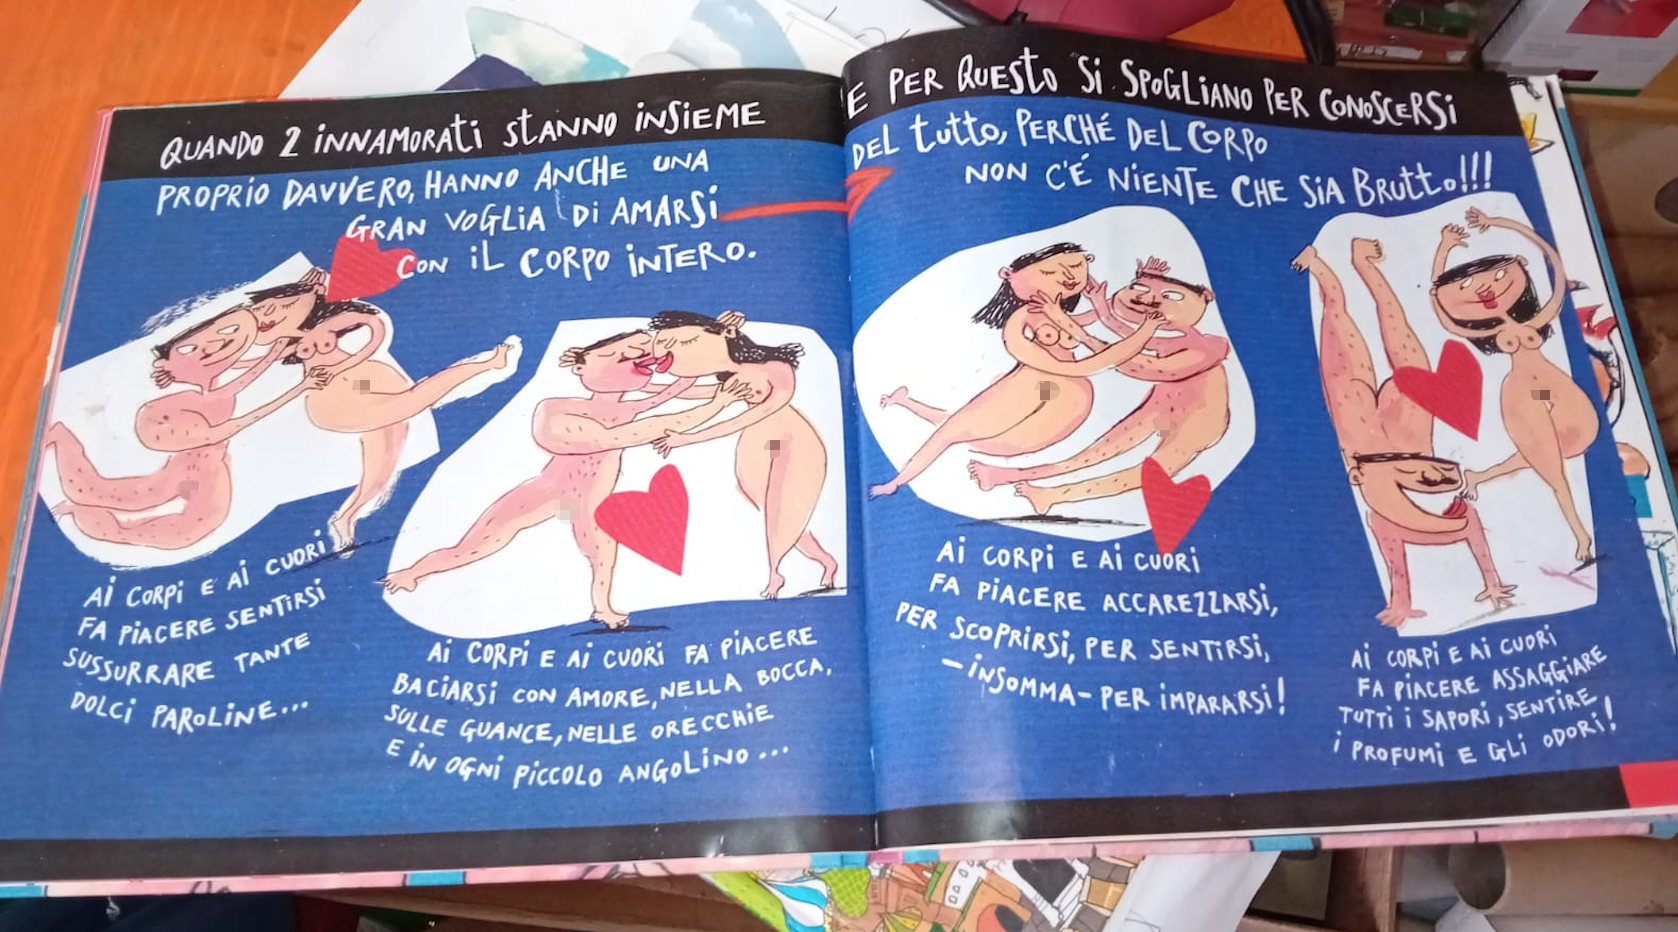 QUANDO 2 INNAMORATI STANNO INSIEME
PROPRIO DAVVERO, HANNO ANCHE UNA
GRAN VOGLIA DI AMARSI
CON IL CORPO INTERO.
AI CORPI E AI CUORI
FA PIACERE SENTIRSI
SUSSURRARE TANTE
DOLCI PAROLINE...
AI CORPI E AI CUORI FA PIACERE
BACIARSI CON AMORE, NELLA BOCCA,
SULLE GUANCE, NELLE ORECCHIE
E IN OGNI PICCOLO ANGOLINO...
E PER QUESTO SI SPOGLIANO PER CONOSCERSI
DEL TUTTO, PERCHÉ DEL CORPO
NON C'É NIENTE CHE SIA BRUTTO!!!
AI CORPI E AI CUORI
FA PIACERE ACCAREZZARSI,
PER SCOPRIRSI, PER SENTIRSI,
-INSOMMA- PER IMPARARSI!
AI CORPI E AI CUORI
FA PIACERE ASSAGGIARE
TUTTI I SAPORI, SENTIRE
I PROFUMI E GLI ODORI!